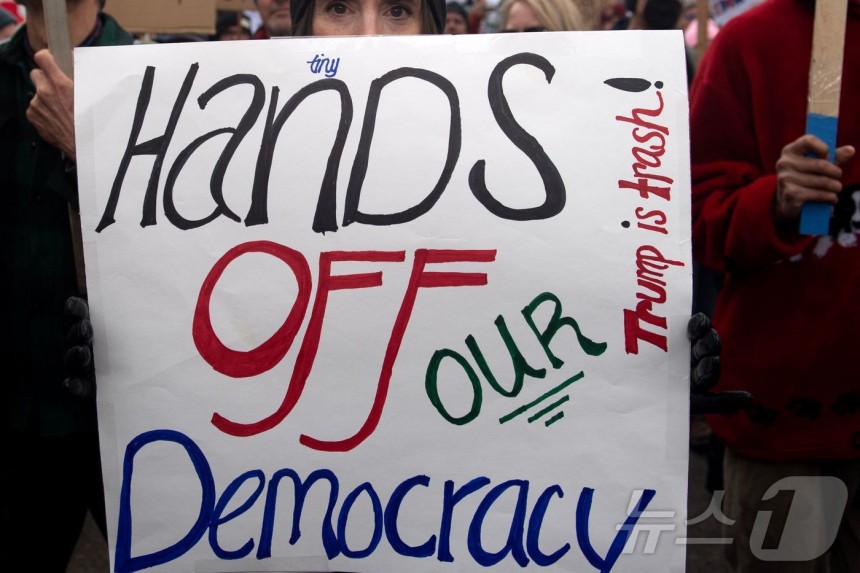 tiny
HANDS
OFF
OUR
Democracy
Trump is trash!
뉴스1